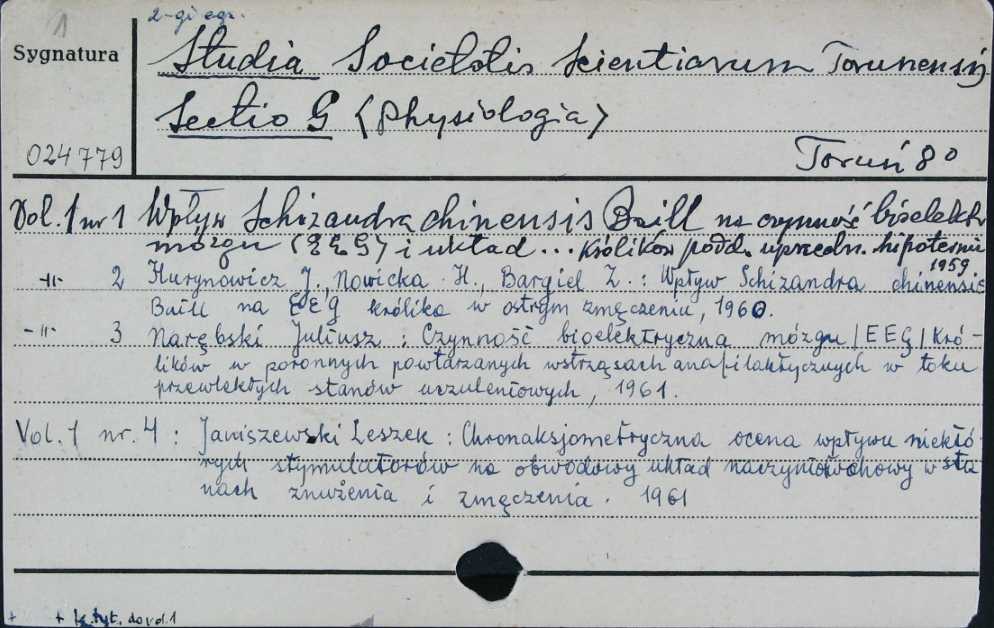 1
2-gi egz.
Sygnatura
Studia Societatis Scientiarum Torunensis
Sectio G (Physiologia)
024779
Toruń 8°
Vol. 1 nr 1 Wpływ Schizandra chinensis Baill na czynność bioelektr.
mózgu (EEG) i układ ... królików podd. uprzedn. hipotermii
1959
-"- 2 Hurynowicz J., Nowicka H., Bargiel Z.: Wpływ Schizandra chinensis
Baill na EEG królika w ostrym zmęczeniu, 1960.
-"- 3 Narębski Juliusz: Czynność bioelektryczna mózgu /EEG/ kró-
lików w poronnych powtarzanych wstrząsach anafilaktycznych w toku
przewlekłych stanów uczuleniowych, 1961.
Vol. 1 nr. 4: Janiszewski Leszek: Chronaksjometryczna ocena wpływu niektó-
rych stymulatorów na obwodowy układ naczynioruchowy w sta
nach znużenia i zmęczenia. 1961
+ + k. tyt. do vol. 1